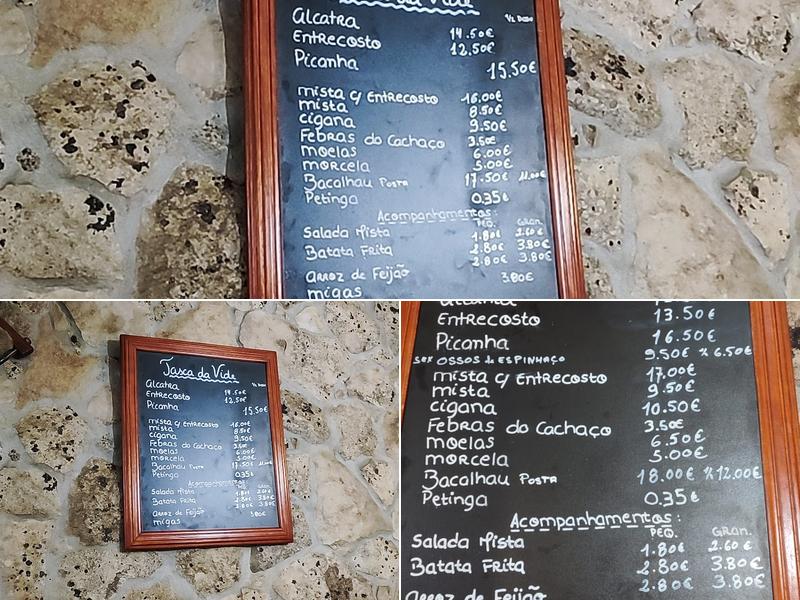 ½ Dose
Alcatra 14.50€
Entrecosto 12,50€
Picanha 15,50€
mista c/ Entrecosto 16.00€
mista 8.50€
cigana 9.50€
Febras do Cachaço 3.50€
moelas 6.00€
morcela 5.00€
Bacalhau Posta 17.50€ 11.00€
Petinga 0.35€
Acompanhamentos:
PEQ. Gran.
Salada Mista 1.80€ 2.60€
Batata Frita 2.80€ 3.80€
2.80€ 3.80€
arroz de Feijão 3.80€
migas
Tasca da Vide
½ Dose
Alcatra 14.50€
Entrecosto 12,50€
Picanha 15,50€
mista c/ Entrecosto 16.00€
mista 8.50€
cigana 9.50€
Febras do Cachaço 3.50€
moelas 6.00€
morcela 5.00€
Bacalhau Posta 17.50€ 11.00€
Petinga 0.35€
Acompanhamentos:
Salada Mista 1.80€ 2.60€
Batata Frita 2.80€ 3.80€
2.80€ 3.80€
arroz de Feijão 3.80€
migas
Entrecosto 13.50€
Picanha 16.50€
SEX OSSOS de ESPINHAÇO 9.50€ ½ 6.50€
mista c/ Entrecosto 17.00€
mista 9.50€
cigana 10.50€
Febras do Cachaço 3.50€
moelas 6.50€
morcela 5.00€
Bacalhau Posta 18.00€ ½ 12.00€
Petinga 0.35€
Acompanhamentos:
PEQ. Gran.
Salada Mista 1.80€ 2.60€
Batata Frita 2.80€ 3.80€
2.80€ 3.80€
arroz de Feijão